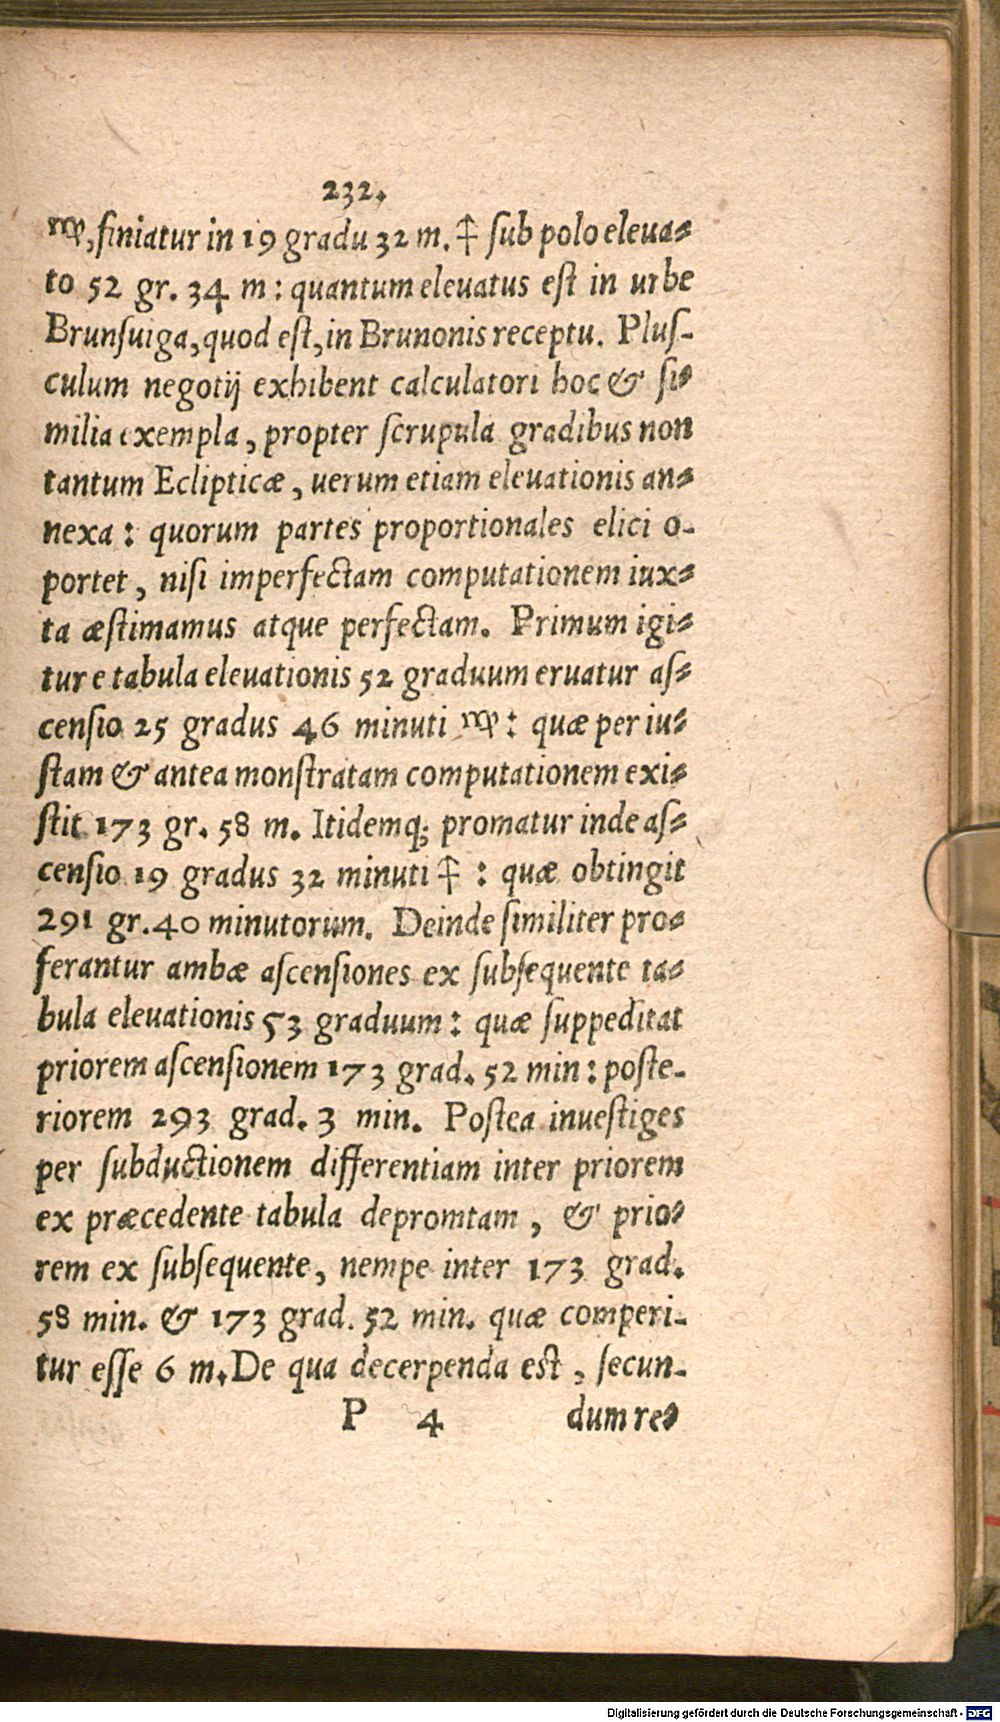 232.
♍,finiatur in 19 gradu 32 m. ♐ ſub polo eleua⸗
to 52 gr. 34 m : quantum eleuatus eſt in urbe
Brunſuiga,quod eſt,in Brunonis receptu. Pluſ-
culum negotij exhibent calculatori hoc & ſi⸗
milia exempla, propter ſcrupula gradibus non
tantum Eclipticæ, uerum etiam eleuationis an⸗
nexa : quorum partes proportionales elici o-
portet, niſi imperfectam computationem iux⸗
ta æſtimamus atque perfectam. Primum igi⸗
tur e tabula eleuationis 52 graduum eruatur aſ⸗
cenſio 25 gradus 46 minuti ♍ : quæ per iu⸗
ſtam & antea monſtratam computationem exi⸗
ſtit 173 gr. 58 m. Itidemq; promatur inde aſ⸗
cenſio 19 gradus 32 minuti ♐ : quæ obtingit
291 gr. 40 minutorum. Deinde ſimiliter pro⸗
ferantur ambæ aſcenſiones ex ſubſequente ta⸗
bula eleuationis 53 graduum : quæ ſuppeditat
priorem aſcenſionem 173 grad. 52 min : poſte-
riorem 293 grad. 3 min. Poſtea inueſtiges
per ſubductionem differentiam inter priorem
ex præcedente tabula depromtam, & prio⸗
rem ex ſubſequente, nempe inter 173 grad.
58 min. & 173 grad. 52 min. quæ comperi-
tur eſſe 6 m. De qua decerpenda eſt, ſecun-
P 4 dum re⸗
Digitalisierung gefördert durch die Deutsche Forschungsgemeinschaft - DFG